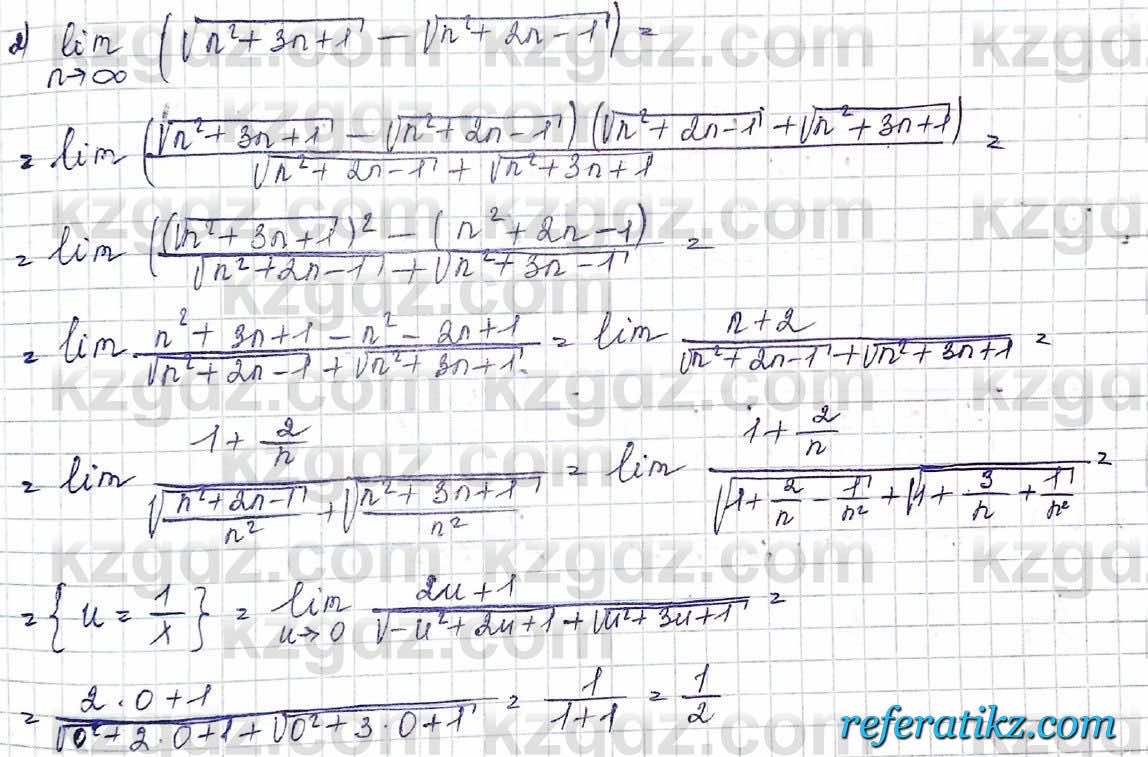 2) lim n→∞ (√(n² + 3n + 1) − √(n² + 2n − 1)) =
= lim ((√(n² + 3n + 1) − √(n² + 2n − 1)) (√(n² + 2n − 1) + √(n² + 3n + 1))) / (√(n² + 2n − 1) + √(n² + 3n + 1)) =
= lim ((√(n² + 3n + 1))² − (n² + 2n − 1)) / (√(n² + 2n − 1) + √(n² + 3n − 1)) =
= lim (n² + 3n + 1 − n² − 2n + 1) / (√(n² + 2n − 1) + √(n² + 3n + 1)) = lim (n + 2) / (√(n² + 2n − 1) + √(n² + 3n + 1)) =
= lim (1 + 2/n) / (√((n² + 2n − 1)/n²) + √((n² + 3n + 1)/n²)) = lim (1 + 2/n) / (√(1 + 2/n − 1/n²) + √(1 + 3/n + 1/n²)) =
= {u = 1/x} = lim u→0 (2u + 1) / (√(−u² + 2u + 1) + √(u² + 3u + 1)) =
= (2 · 0 + 1) / (√(0² + 2 · 0 + 1) + √(0² + 3 · 0 + 1)) = 1/(1 + 1) = 1/2
referatikz.com
kzgdz.com